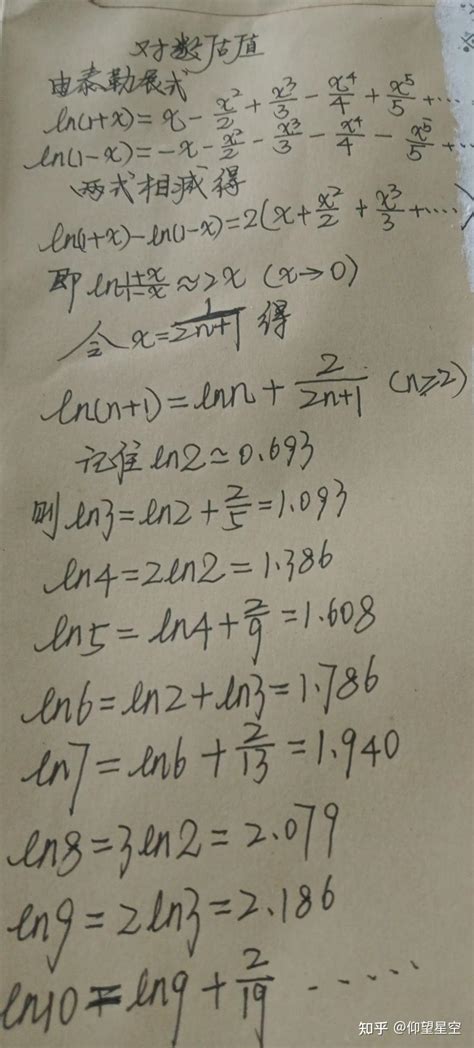 对数估值
由泰勒展式
ln(1+x)=x-x²/2+x³/3-x⁴/4+x⁵/5+…
ln(1-x)=-x-x²/2-x³/3-x⁴/4-x⁵/5+…
两式相减得
ln(1+x)-ln(1-x)=2(x+x²/2+x³/3+…)
即 ln1+x/1-x≈2x (x→0)
令 x=1/2n+1 得
ln(n+1)=lnn+2/2n+1 (n≥2)
记住 ln2≈0.693
则 ln3=ln2+2/5=1.093
ln4=2ln2=1.386
ln5=ln4+2/9=1.608
ln6=ln2+ln3=1.786
ln7=ln6+2/13=1.940
ln8=3ln2=2.079
ln9=2ln3=2.186
ln10=ln9+2/19……
知乎 @仰望星空